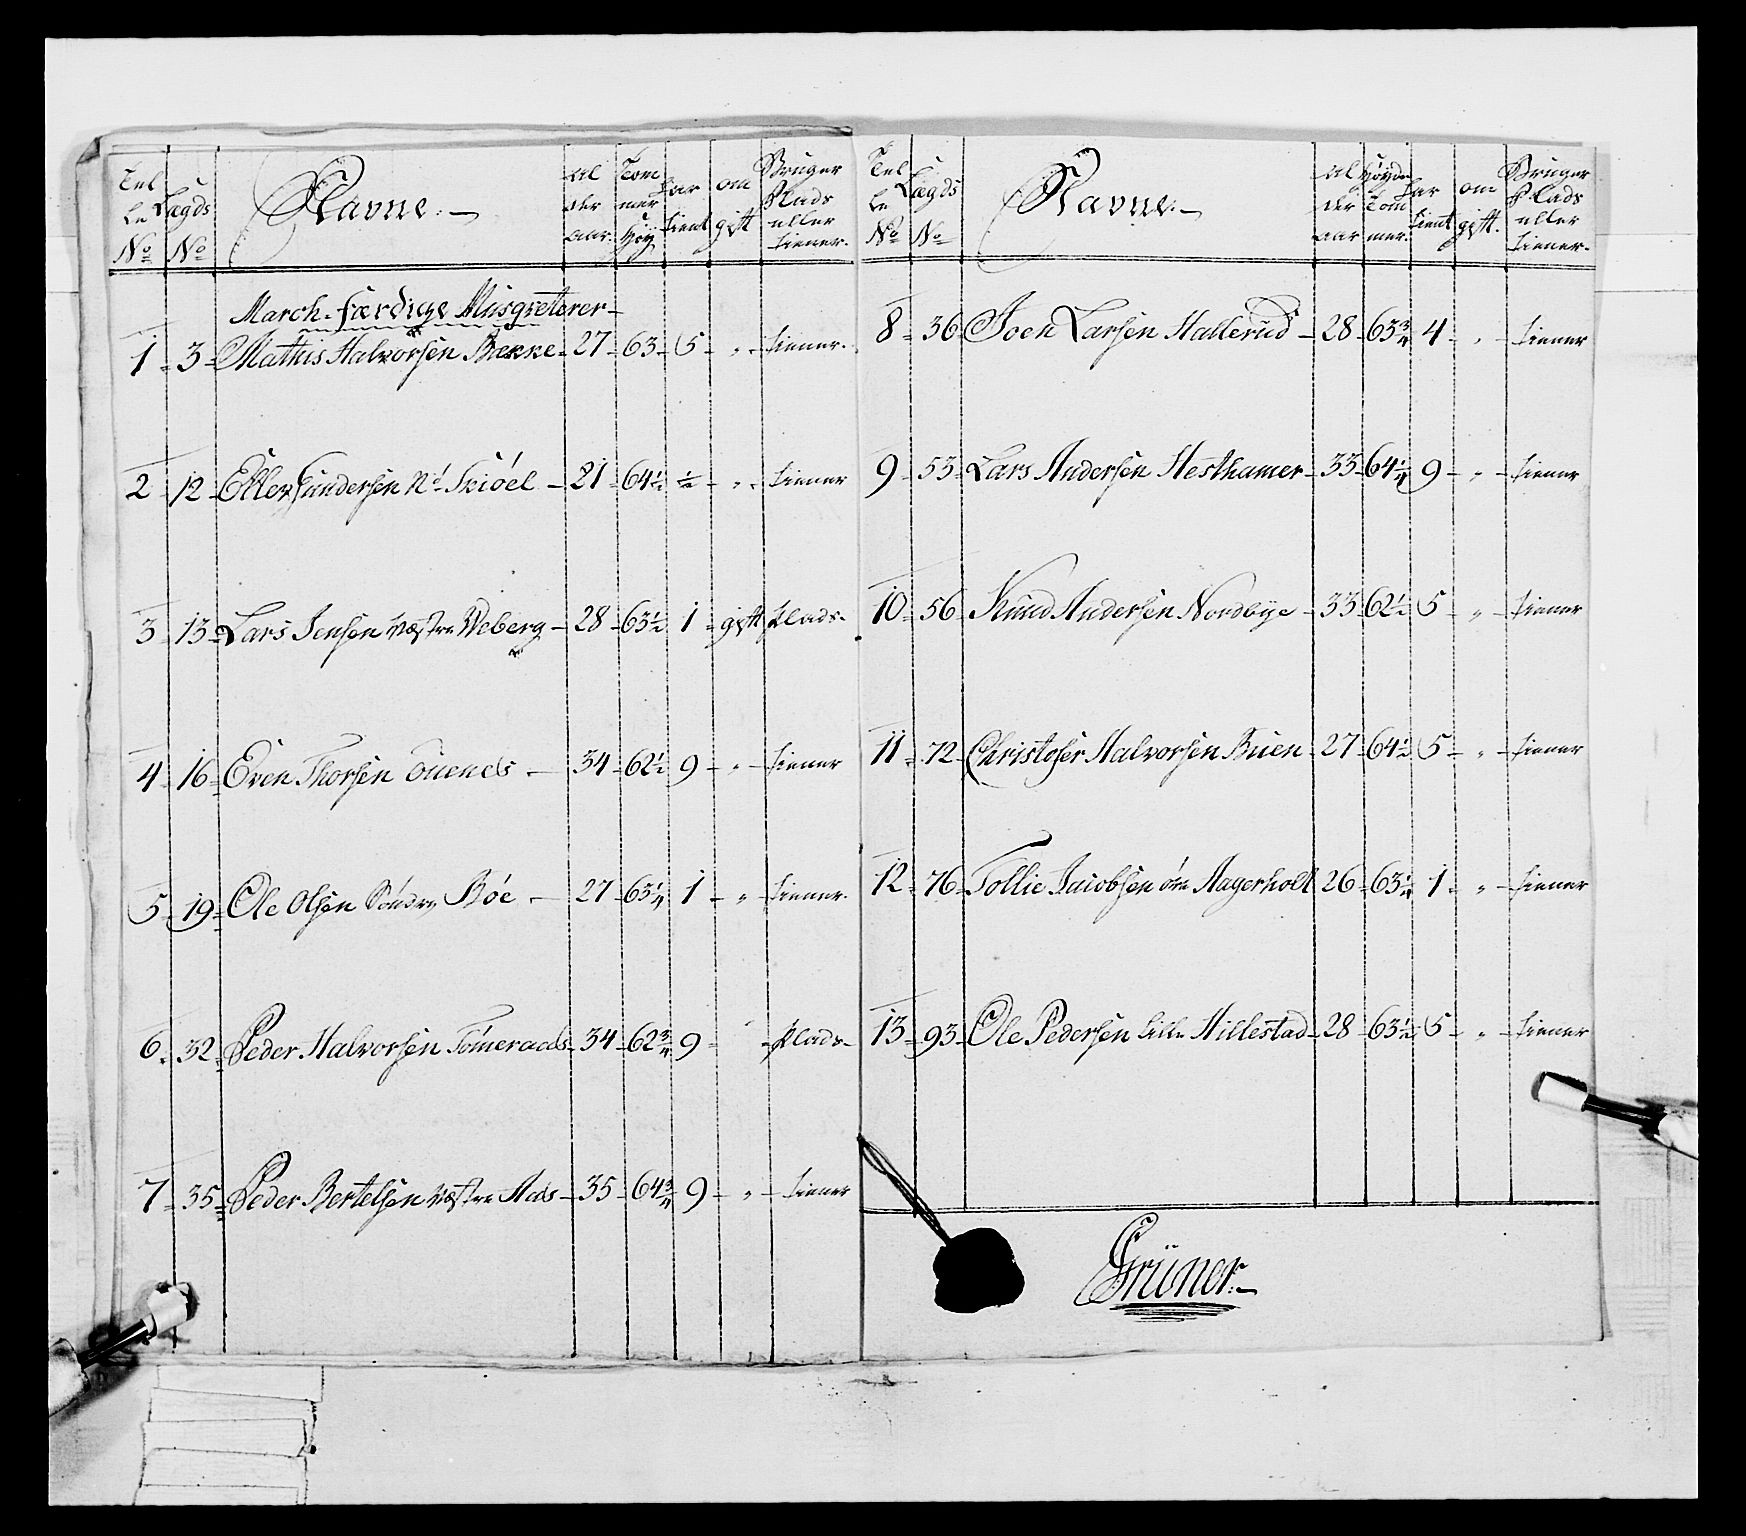 Tel Lægds Navne. Al Tom har om Bruger
le der mer tient gift Plads
No No aar Höy eller
tiener.
March-færdige Musqueterer
1 3 Mathis Halvorsen Bække 27 63 5 " tiener.
2 12 Eller Gundersen Nd Skiöel 21 64½ ½ " tiener
3 13 Lars Jensen væstre Weberg 28 63½ 1 gift Plads.
4 16 Even Thorsen 34 62½ 9 " tiener
5 19 Ole Olsen Söndre Böe 27 63¼ 1 " tiener.
6 32 Peder Halvorsen Tömeraas 34 62¾ 9 Plads
7 35 Peder Bertelsen væstre Aas 35 64¾ 9 " tiener
Tel Lægds Navne. Al Höyde har om Bruger
le der Tom tient gift. Plads
No No aar mer. eller
tiener.
8 36 Joen Larsen Hallerud 28 63¾ 4 " tiener
9 53 Lars Andersen Hesthamer 33 64¼ 9 " tiener
10 56 Knud Andersen Nordbye 33 62½ 5 " tiener
11 72 Christofer Halvorsen Buen 27 64½ 5 " tiener
12 76 Tollie Jacobsen öre Aagerholt 26 63¼ 1 " tiener
13 93 Ole Pedersen lille Hillestad 28 63½ 5 " tiener
Grüner.